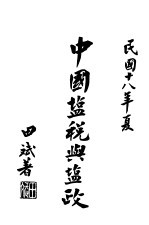 民國十八年夏
中國塩税與塩政
田斌著